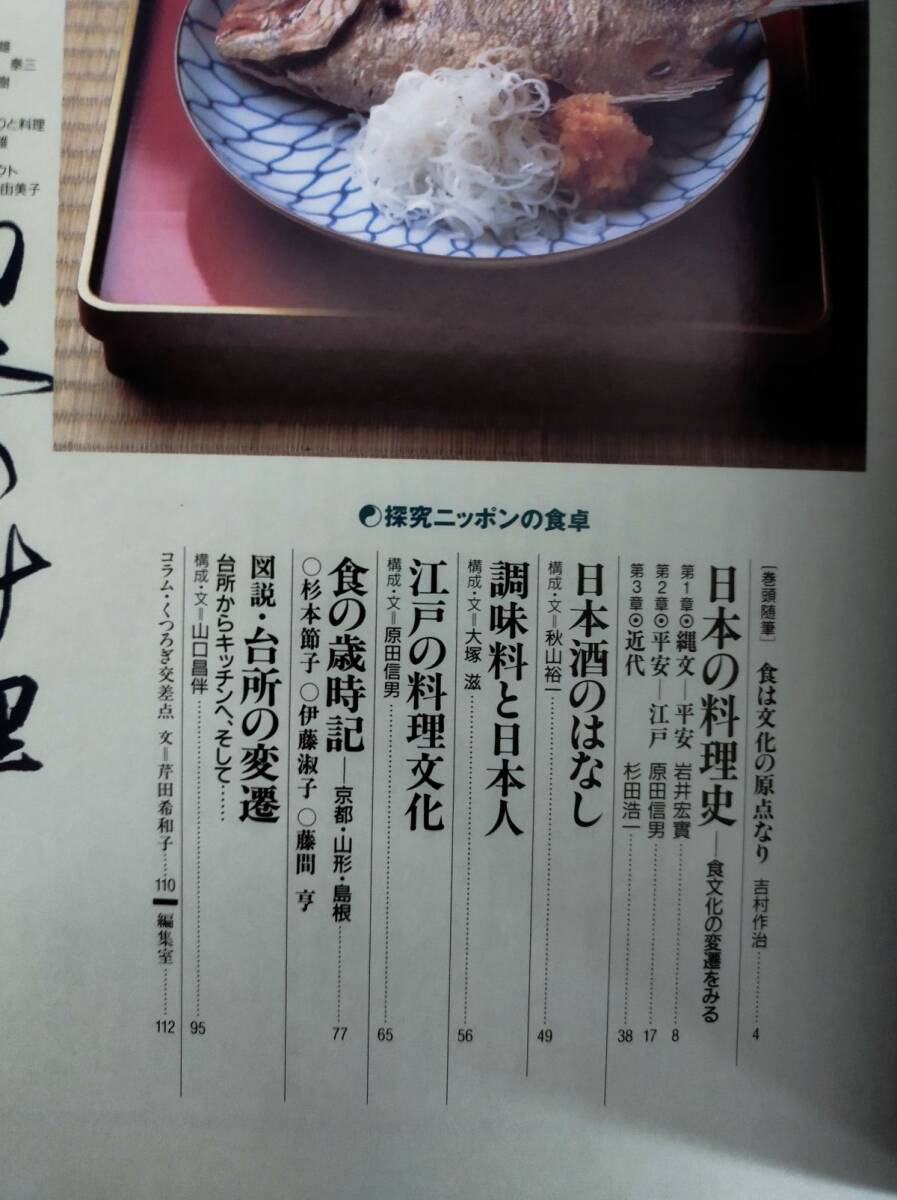 雄
泰三
樹
りと料理
雄
ウト
由美子
の料理
探究ニッポンの食卓
[巻頭随筆] 食は文化の原点なり 吉村作治………4
日本の料理史──食文化の変遷をみる
第1章⦿縄文─平安 岩井宏實………8
第2章⦿平安─江戸 原田信男………17
第3章⦿近代 杉田浩一………38
日本酒のはなし
構成・文=秋山裕一………49
調味料と日本人
構成・文=大塚 滋………56
江戸の料理文化
構成・文=原田信男………65
食の歳時記──京都・山形・島根………77
○杉本節子 ○伊藤淑子 ○藤間 亨
図説・台所の変遷
台所からキッチンへ、そして……
構成・文=山口昌伴………95
コラム・くつろぎ交差点 文=芹田希和子……110
編集室………112